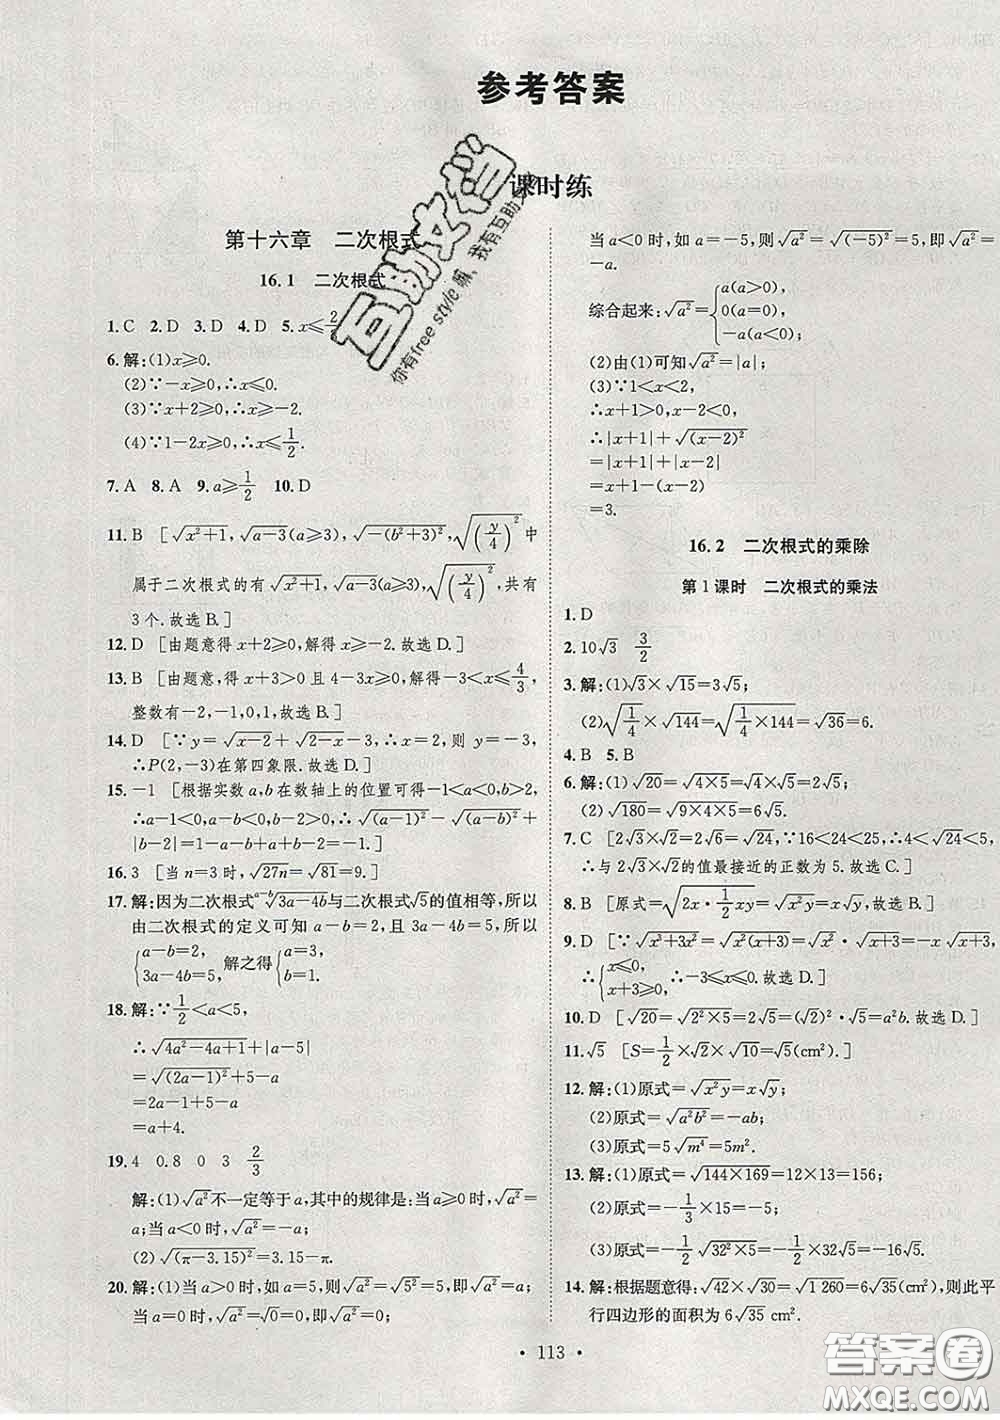 参考答案
课时练
第十六章 二次根式
16.1 二次根式
1.C 2.D 3.D 4.D 5.x≤2/
6.解:(1)x≥0.
(2)∵-x≥0,∴x≤0.
(3)∵x+2≥0,∴x≥-2.
(4)∵1-2x≥0,∴x≤1/2.
7.A 8.A 9.a≥1/2 10.D
11.B [√(x²+1),√(a-3)(a≥3),√(-(b²+3)²),√((-y/4)²)中
属于二次根式的有√(x²+1),√(a-3)(a≥3),√((-y/4)²),共有
3个.故选B.]
12.D [由题意得x+2≥0,解得x≥-2.故选D.]
13.B [由题意,得x+3>0且4-3x≥0,解得-3<x≤4/3,
整数有-2,-1,0,1,故选B.]
14.D [∵y=√(x-2)+√(2-x)-3,∴x=2,则y=-3,
∴P(2,-3)在第四象限.故选D.]
15.-1 [根据实数a,b在数轴上的位置可得-1<a<0,b>2,
∴a-1<0,a-b<0,b-2>0,∴√((a-1)²)-√((a-b)²)+
|b-2|=1-a-b+a+b-2=-1.]
16.3 [当n=3时,√(27n)=√81=9.]
17.解:因为二次根式ᵃ⁻ᵇ√(3a-4b)与二次根式√5的值相等,所以
由二次根式的定义可知a-b=2,且3a-4b=5,所以
{a-b=2, 3a-4b=5, 解之得{a=3, b=1.
18.解:∵1/2<a<5,
∴√(4a²-4a+1)+|a-5|
=√((2a-1)²)+5-a
=2a-1+5-a
=a+4.
19.4 0.8 0 3 2/3
解:(1)√(a²)不一定等于a,其中的规律是:当a≥0时,√(a²)=
a;当a<0时,√(a²)=-a;
(2)√((π-3.15)²)=3.15-π.
20.解:(1)当a>0时,如a=5,则√(a²)=√(5²)=5,即√(a²)=a;
当a=0时,如a=0,则√(a²)=√(0²)=0,即√(a²)=0;
当a<0时,如a=-5,则√(a²)=√((-5)²)=5,即√(a²)=
-a.
综合起来:√(a²)={a(a>0), 0(a=0), -a(a<0);
(2)由(1)可知√(a²)=|a|;
(3)∵1<x<2,
∴x+1>0,x-2<0,
∴|x+1|+√((x-2)²)
=|x+1|+|x-2|
=x+1-(x-2)
=3.
16.2 二次根式的乘除
第1课时 二次根式的乘法
1.D
2.10√3 3/2
3.解:(1)√3×√15=3√5;
(2)√(1/4)×√144=√(1/4×144)=√36=6.
4.B 5.B
6.解:(1)√20=√(4×5)=2√5;
(2)√180=√(9×4×5)=6√5.
7.C [2√3×√2=2√6=√24,∵16<24<25,∴4<√24<5,
∴与2√3×√2的值最接近的正数为5.故选C.]
8.B [原式=√(2x·1/2xy)=√(x²y)=x√y,故选B.]
9.D [∵√(x³+3x²)=√(x²(x+3))=√(x²)·√(x+3)=-x√(x+3),
∴{x≤0, x+3≥0, ∴-3≤x≤0.故选D.]
10.D [√20=√(2²×5)=2√5=(√2)²·√5=a²b.故选D.]
11.√5 [S=1/2×√2×√10=√5(cm²).]
12.解:(1)原式=√(x²y)=x√y;
(2)原式=√(a²b²)=-ab;
(3)原式=5√(m⁴)=5m².
13.解:(1)原式=√(144×169)=12×13=156;
(2)原式=-1/3×15=-5;
(3)原式=-1/2√(32²×5)=-1/2×32√5=-16√5.
14.解:根据题意得:√42×√30=√1 260=6√35(cm²),则此平
行四边形的面积为6√35 cm².
• 113 •
互助文档
你有free style嘛、我有互助文档
答案圈
MXQE.COM